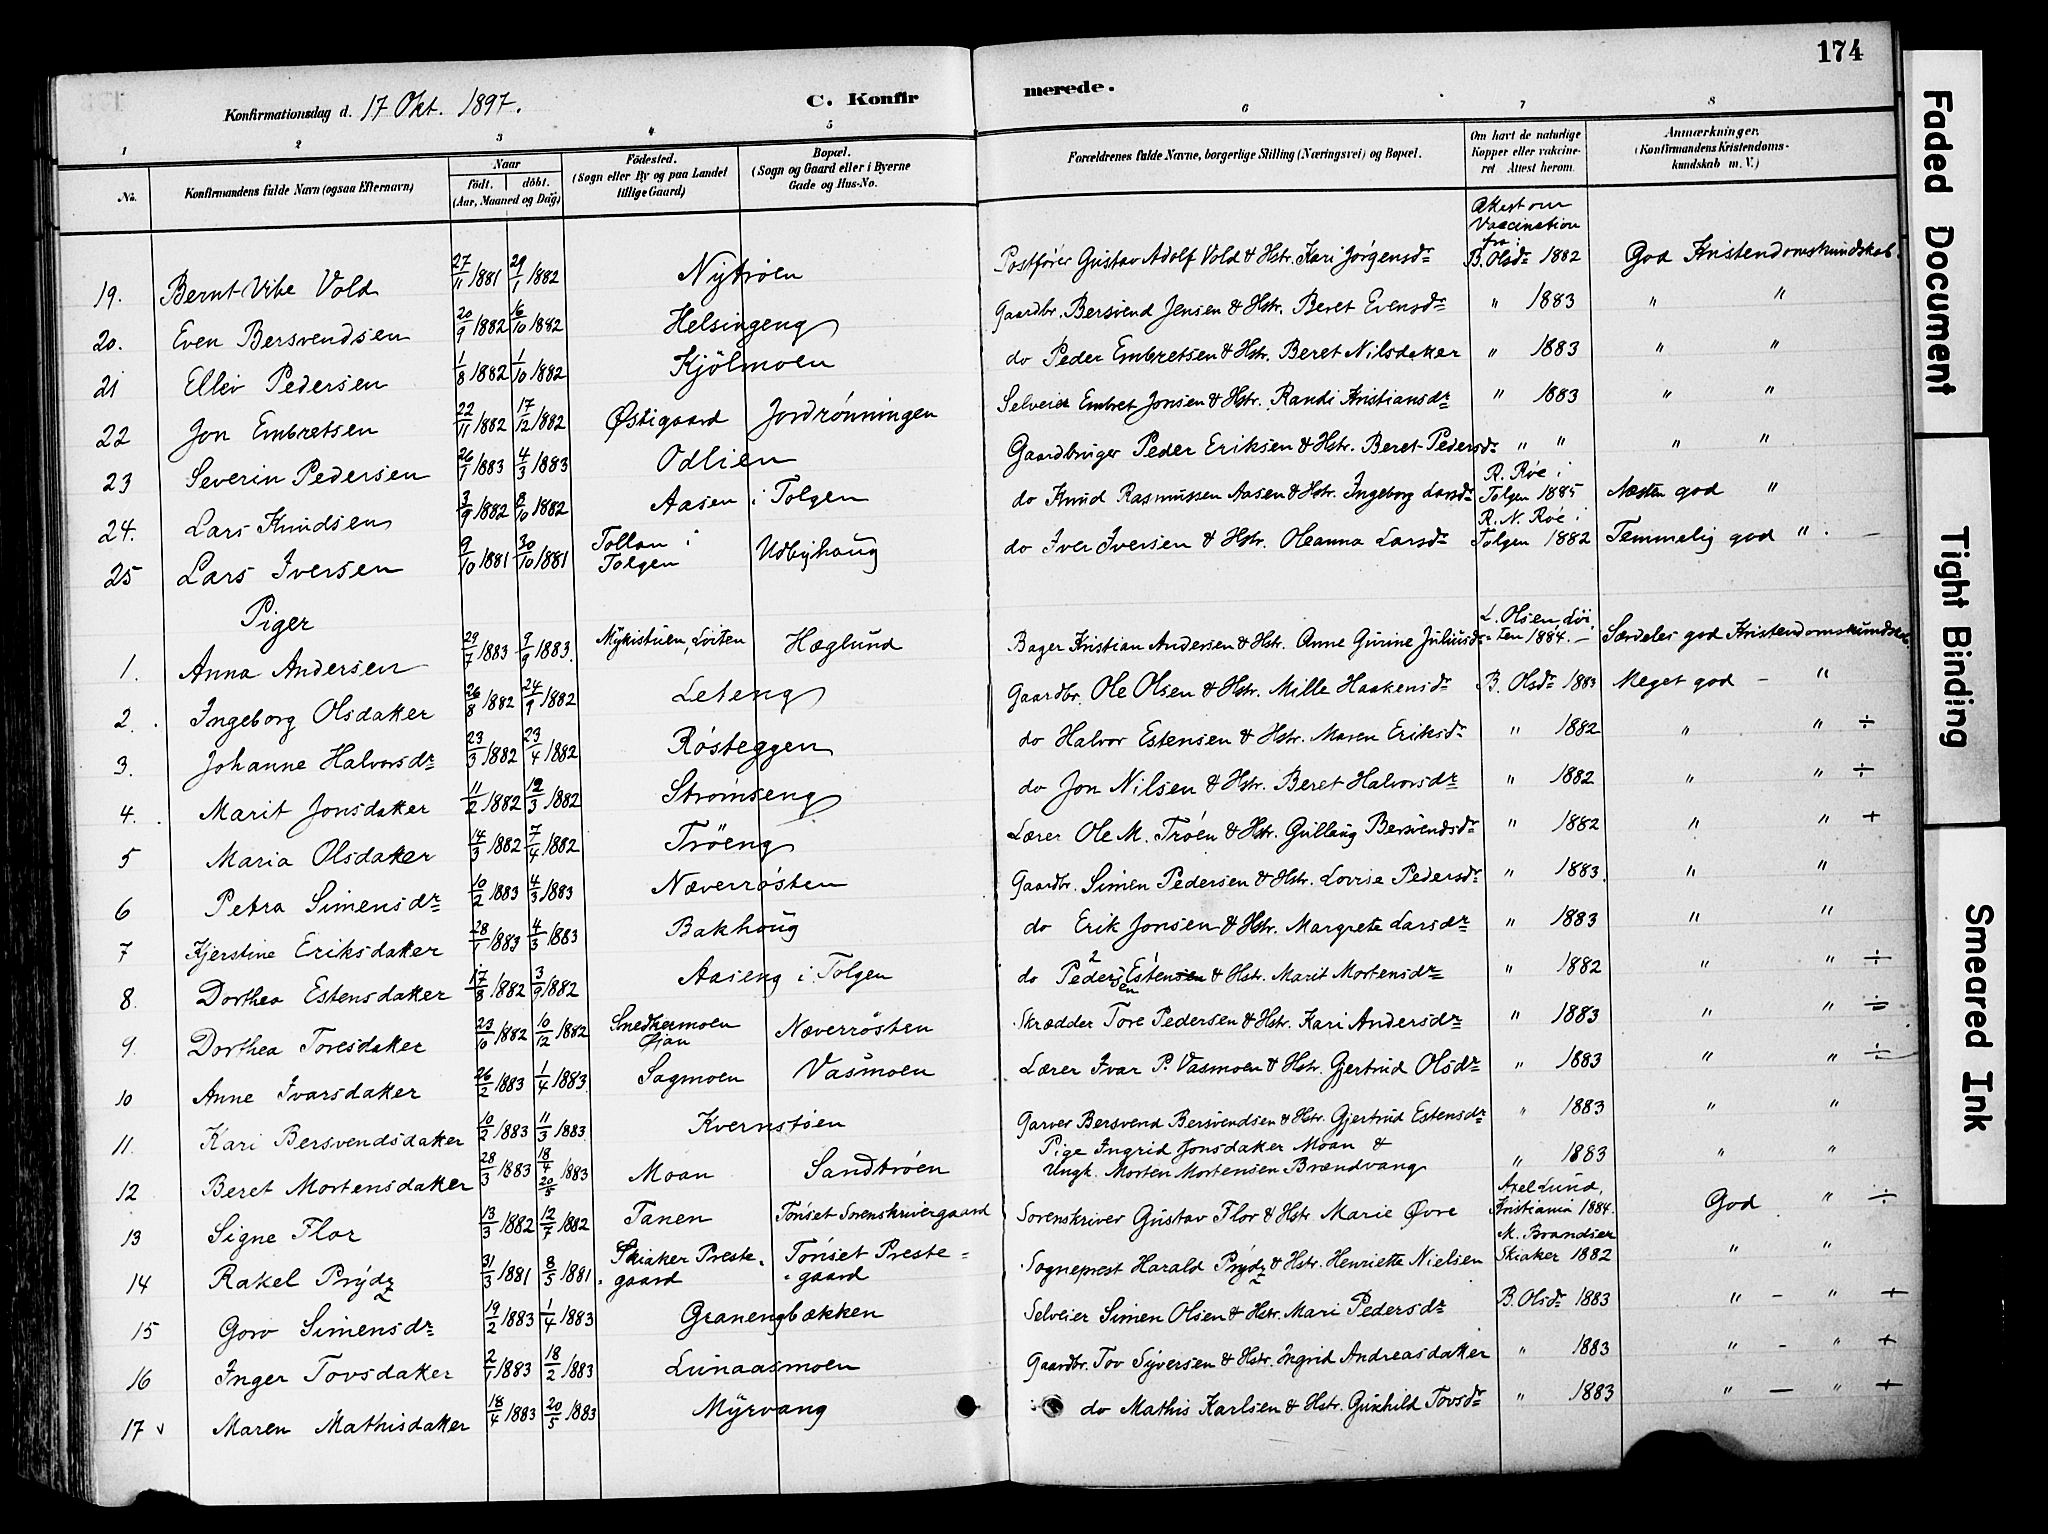 174
Konfirmationsdag d. 17 Okt. 1897.
C. Konfirmerede.
1 2 3 4 5 6 7 8
No. Konfirmandens fulde Navn (ogsaa Efternavn) Naar født. døbt. (Aar, Maaned og Dag) Fødested. (Sogn eller By og paa Landet tillige Gaard) Bopæl. (Sogn og Gaard eller i Byerne Gade og Hus-No. Forældrenes fulde Navne, borgerlige Stilling (Næringsvei) og Bopæl. Om havt de naturlige Kopper eller vakcineret Attest herom. Anmærkninger. (Konfirmandens Kristendomskundskab m. V.)
19. Bernt Vibe Vold 27/11 1881 29/1 1882 Nytrøen Postfører Gustav Adolf Vold & Hstr. Kari Jørgensdr Attest om Vaccination fra: B. Olsdr 1882 God Kristendomskundskab.
20. Even Bersvendsen 20/9 1882 16/10 1882 Helsingeng Gaardbr. Bersvend Jensen & Hstr. Beret Evensdr " 1883 " "
21 Ellev Pedersen 1/8 1882 1/10 1882 Kjølmoen do Peder Embretsen & Hstr. Beret Nilsdaker " 1883 " "
22 Jon Embretsen 22/11 1882 17/12 1882 Østigaard Jordrønningen Selveier Embret Jonsen & Hstr. Randi Kristiansdr " 1883 " "
23 Severin Pedersen 26/1 1883 4/3 1883 Odlien Gaardbruger Peder Eriksen & Hstr. Beret Pedersdr " " " "
24. Lars Knudsen 3/9 1882 8/10 1882 Aasen i Tolgen do Knud Rasmussen Aasen & Hstr. Ingeborg Larsdr R. Røe i Tolgen 1885 Næsten god "
25 Lars Iversen 9/10 1881 30/10 1881 Tollan i Tolgen Udbyhaug do Iver Iversen & Hstr. Oleanna Larsdr R. N. Røe i Tolgen 1882 Temmelig god " . –
Piger
1. Anna Andersen 29/7 1883 9/9 1883. Mykistuen, Løiten Hæglund Bager Kristian Andersen & Hstr. Anne Gurine Juliusdr L. Olsen, Løiten 1884. – Særdeles god Kristendomskundskab.
2. Ingeborg Olsdaker 26/8 1882 24/9 1882 Leteng Gaardbr. Ole Olsen & Hstr. Mille Haakensdr B. Olsdr 1883 Meget god – "
3. Johanne Halvorsdr 23/3 1882 23/4 1882 Røsteggen do Halvor Estensen & Hstr. Maren Eriksdr " 1882 " " ÷
4. Marit Jonsdaker 11/2 1882 12/3 1882 Strømseng do Jon Nilsen & Hstr. Beret Halvorsdr " 1882 " " ÷
5 Maria Olsdaker 14/3 1882 7/4 1882 Trøeng Lærer Ole M. Trøen & Hstr. Gullaug Bersvendsdr " 1882 " " +
6 Petra Simensdr 10/2 1883 4/3 1883 Næverrøsten Gaardbr. Simen Pedersen & Hstr. Lovise Pedersdr " 1883. " "
7 Kjerstine Eriksdaker 28/1 1883 4/3 1883 Bakhaug do Erik Jonsen & Hstr. Margrete Larsdr " 1883 " "
8. Dorthea Estensdaker 17/8 1882 3/9 1882 Aaseng i Tolgen do 2 Pedersen 1 Estensen & Hstr. Marit Mortensdr " 1882 " " ÷
9. Dorthea Toresdaker 23/10 1882 10/12 1882 Snedkermoen Næverrøsten Skrædder Tore Pedersen & Hstr. Kari Andersdr " 1883 " " ÷
10 Anne Ivarsdaker 26/2 1883 1/4 1883. Sagmoen Vasmoen Lærer Ivar P. Vasmoen & Hstr. Gjertrud Olsdr " 1883 " " ÷
11. Kari Bersvendsdaker 10/2 1883 11/3 1883 Kvernstøen Garver Bersvend Bersvendsen & Hstr. Gjertrud Estensdr " 1883 " "
12 Beret Mortensdaker 28/3 1883 18/4 20/5 1883 Moan Sandtrøen Pige Ingrid Jonsdaker Moan & Ungk. Morten Mortensen Brændvang " 1883 " "
13 Signe Flor 13/3 1882 12/7 1882 Tanen Tønset Sorenskrivergaard Sorenskriver Gustav Flor & Hstr Marie Øvre Axel Lund, Kristiania 1884. God " ÷
14 Rakel Prydz 31/3 1881 8/5 1881 Skiaker Prestegaard Tønset Prestegaard Sogneprest Harald Prydz & Hstr. Henriette Nielsen M. Brandser Skiaker 1882 " "
15 Goro Simensdr 19/2 1883 1/4 1883 Granengbækken Selveier Simen Olsen & Hstr. Mari Pedersdr B. Olsdr 1883 " – " +
16 Inger Tovsdaker 2/1 1883 18/2 1883 Lunaasmoen Gaardbr. Tov Syversen & Hstr. Ingrid Andreasdaker " 1883 " – " +
17 v Maren Mathisdaker 18/4 1883 20/5 1883 Myrvang do Mathis Karlsen & Hstr. Gunhild Tovsdr " 1883 " – " +
Faded Document
Tight Binding
Smeared Ink